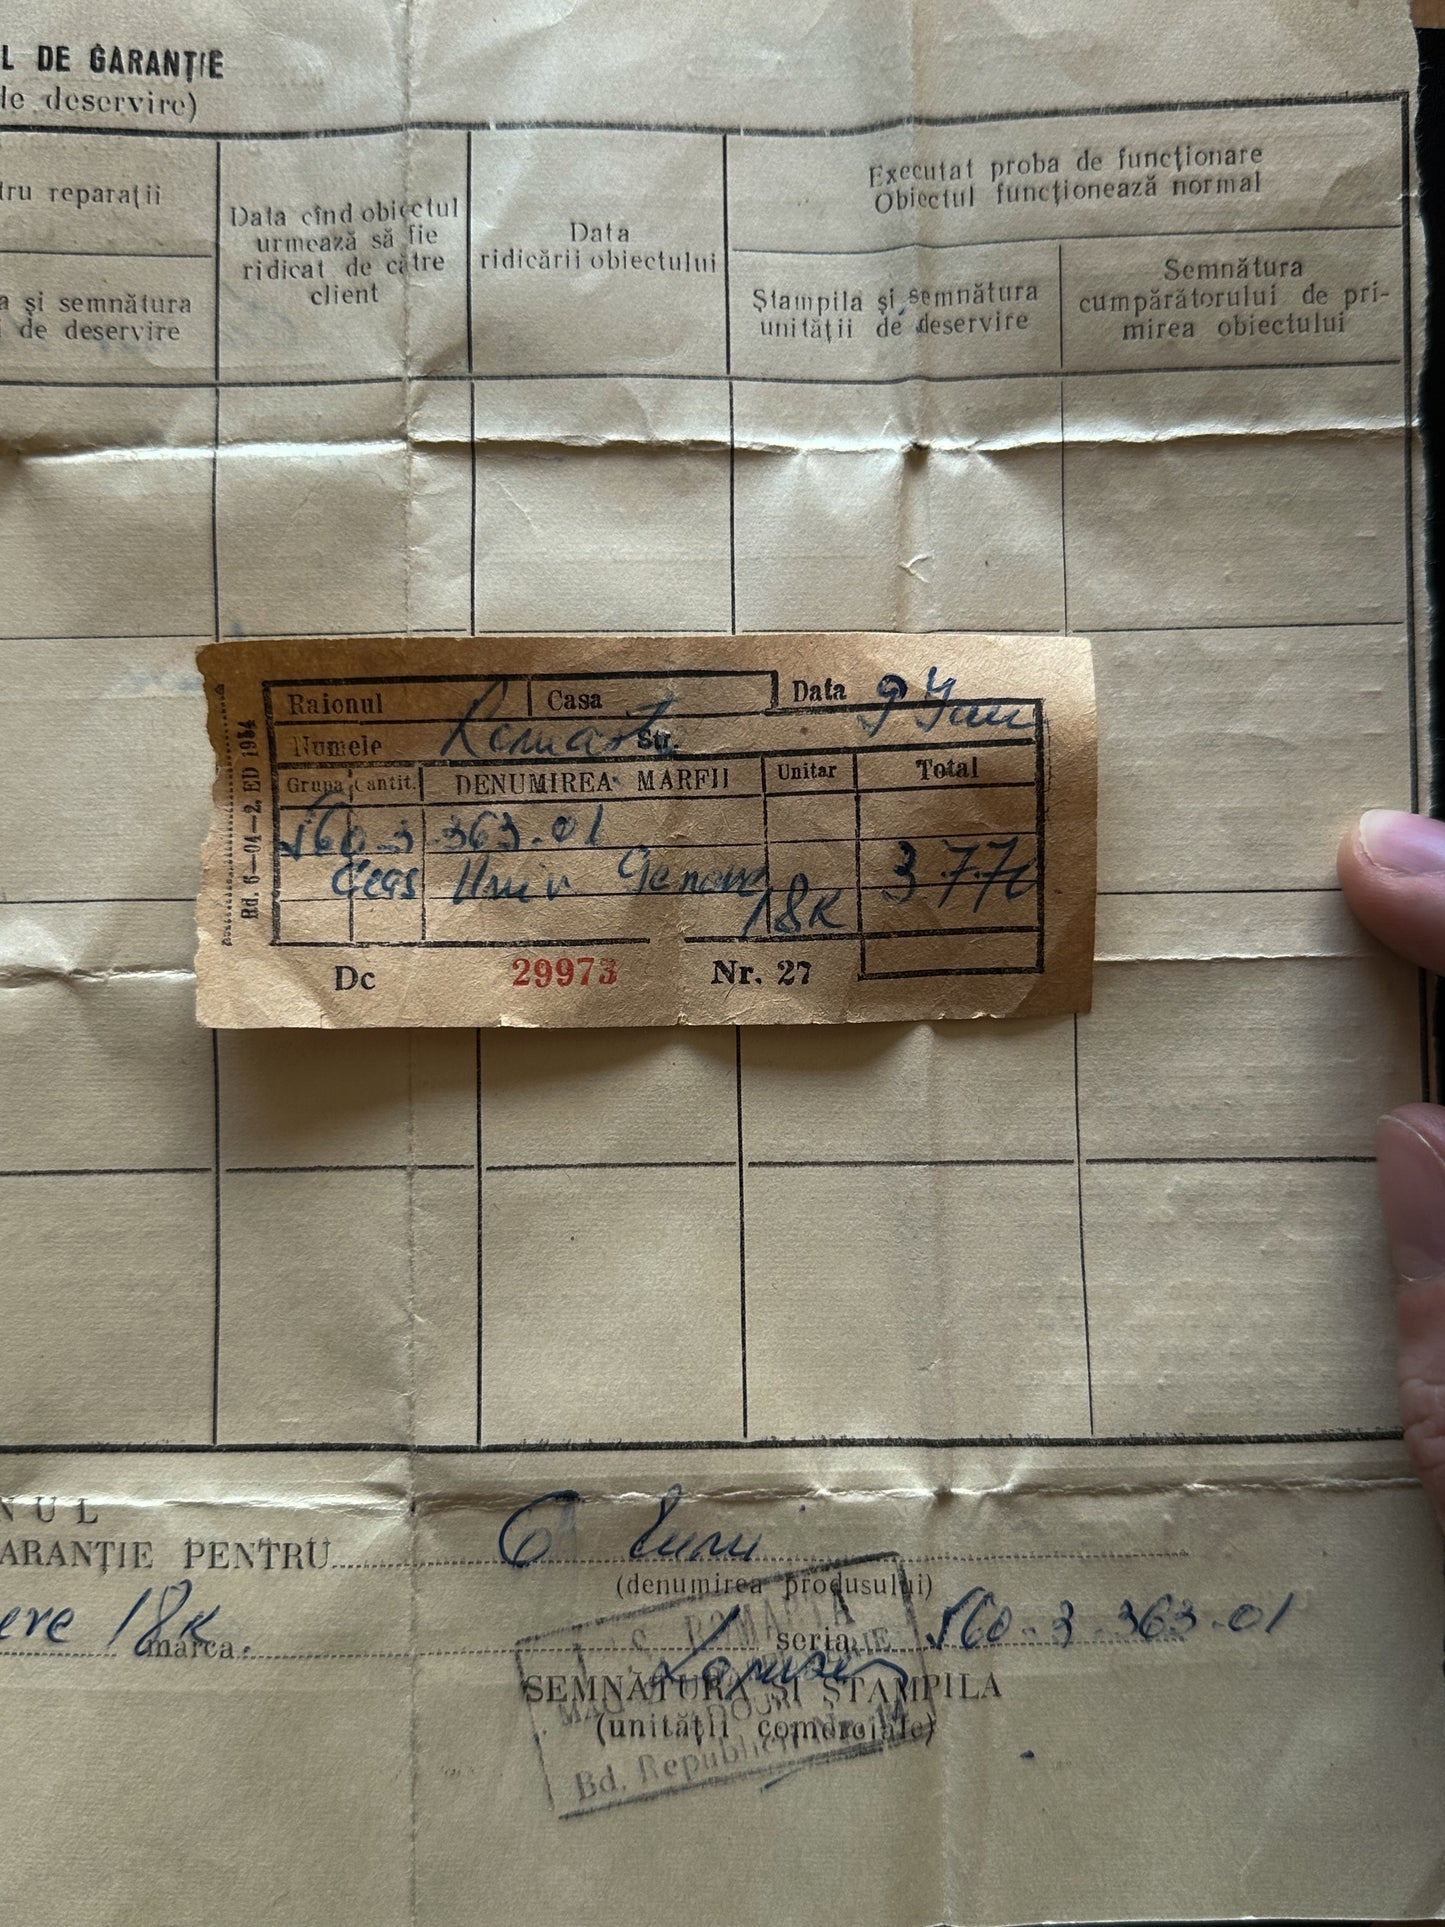 L DE GARANȚIE
de deservire)
tru reparații
Data cînd obiectul
urmează să fie
ridicat de către
client
Data
ridicării obiectului
Executat proba de funcționare
Obiectul funcționează normal
a și semnătura
i de deservire
Ștampila și semnătura
unității de deservire
Semnătura
cumpărătorului de pri-
mirea obiectului
Raionul Casa Data 9 Ian
Numele Romarta Str.
Grupa Cantit. DENUMIREA MĂRFII Unitar Total
560-3 363.01
Ceas Univ Geneve 377
18K
Dc 29973 Nr. 27
Bd. 6—04—2, ED 1954
NUL
ARANȚIE PENTRU 6 luni
(denumirea produsului)
18K marca seria 560-3 363-01
SEMNĂTURA ȘI ȘTAMPILA
(unității comerciale)
ROMARTA
Bd. Republicii Nr.